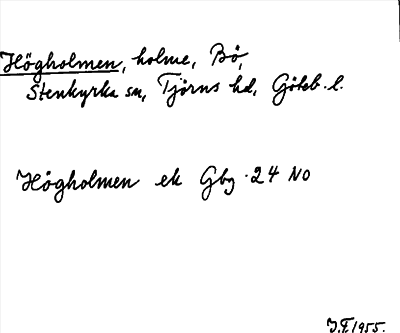 Högholmen, holme, Bö,
Stenkyrka sn, Tjörns hd, Göteb. l.
Högholmen ek Gbg. 24 NO
J.F. 1955.